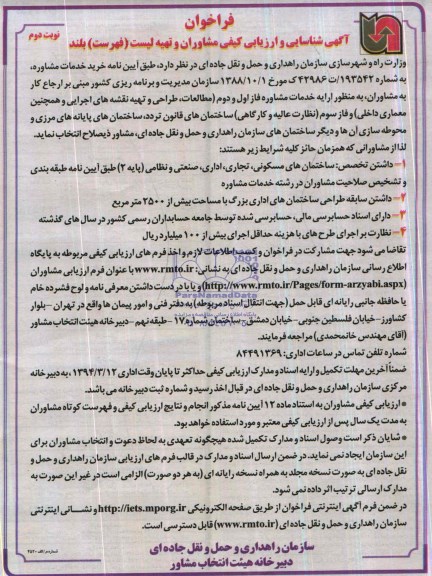 فراخوان
آگهی شناسایی و ارزیابی کیفی مشاوران و تهیه لیست (فهرست) بلند
نوبت دوم
وزارت راه و شهرسازی سازمان راهداری و حمل و نقل جاده‌ای در نظر دارد، طبق آیین نامه خرید خدمات مشاوره،
به شماره ۱۹۳۵۴۲/ت ۴۲۹۸۶ک مورخ ۱۳۸۸/۱۰/۱ سازمان مدیریت و برنامه ریزی کشور مبنی بر ارجاع کار
به مشاوران، به منظور ارایه خدمات مشاوره فاز اول و دوم (مطالعات، طراحی و تهیه نقشه های اجرایی و همچنین
معماری داخلی) و فاز سوم (نظارت عالیه و کارگاهی) ساختمان های قانون تردد، ساختمان های پایانه های مرزی و
محوطه سازی آن ها و دیگر ساختمان های سازمان راهداری و حمل و نقل جاده ای، مشاور ذیصلاح انتخاب نماید.
لذا از مشاورانی که همزمان حائز کلیه شرایط زیر هستند:
۱– داشتن تخصص: ساختمان های مسکونی، تجاری، اداری، صنعتی و نظامی (پایه ۲) طبق آیین نامه طبقه بندی
و تشخیص صلاحیت مشاوران در رشته خدمات مشاوره
۲– داشتن سابقه طراحی ساختمان های اداری بزرگ با مساحت بیش از ۲۵۰۰ متر مربع
۳– دارای اسناد حسابرسی مالی، حسابرسی شده توسط جامعه حسابداران رسمی کشور در سال های گذشته
۴– نظارت بر اجرای طرح های با هزینه حداقل اجرای بیش از ۱۰۰ میلیارد ریال
تقاضا می شود جهت مشارکت در فراخوان و کسب اطلاعات لازم و اخذ فرم های ارزیابی کیفی مربوطه به پایگاه
اطلاع رسانی سازمان راهداری و حمل و نقل جاده ای به نشانی: www.rmto.ir با عنوان فرم ارزیابی مشاوران
(http://www.rmto.ir/Pages/form-arzyabi.aspx) و یا با در دست داشتن معرفی نامه و لوح فشرده خام
یا حافظه جانبی رایانه ای قابل حمل (جهت انتقال اسناد مربوطه) به دفتر فنی و امور پیمان ها واقع در تهران – بلوار
کشاورز– خیابان فلسطین جنوبی– خیابان دمشق– ساختمان شماره ۱۷ – طبقه نهم– دبیرخانه هیئت انتخاب مشاور
(آقای مهندس خانمحمدی) مراجعه فرمایند.
شماره تلفن تماس در ساعات اداری: ۸۴۴۹۱۳۶۹
ضمناً آخرین مهلت تکمیل و ارایه اسناد و مدارک ارزیابی کیفی حداکثر تا پایان وقت اداری ۱۳۹۴/۳/۱۲، به دبیرخانه
مرکزی سازمان راهداری و حمل و نقل جاده ای در قبال اخذ رسید و شماره ثبت دبیرخانه می باشد.
* ارزیابی کیفی مشاوران به استناد ماده ۱۲ آیین نامه مذکور انجام و نتایج ارزیابی کیفی و فهرست کوتاه مشاوران
به مدت یک سال پس از ارزیابی کیفی معتبر و مورد استفاده خواهد بود.
* شایان ذکر است وصول اسناد و مدارک تکمیل شده هیچگونه تعهدی به لحاظ دعوت و انتخاب مشاوران برای
این سازمان ایجاد نمی نماید. در ضمن ارسال اسناد و مدارک در قالب فرم های ارزیابی سازمان راهداری و حمل و
نقل جاده ای به صورت نسخه مجلد به همراه نسخه رایانه ای (به هر دو صورت) الزامی است در غیر این صورت به
مدارک ارسالی ترتیب اثر داده نمی شود.
در ضمن فرم آگهی اینترنتی فراخوان از طریق صفحه الکترونیکی http://iets.mporg.ir و نشانی اینترنتی
سازمان راهداری و حمل و نقل جاده ای (www.rmto.ir) قابل دسترسی است.
سازمان راهداری و حمل و نقل جاده ای
دبیرخانه هیئت انتخاب مشاور
ParsNamadData